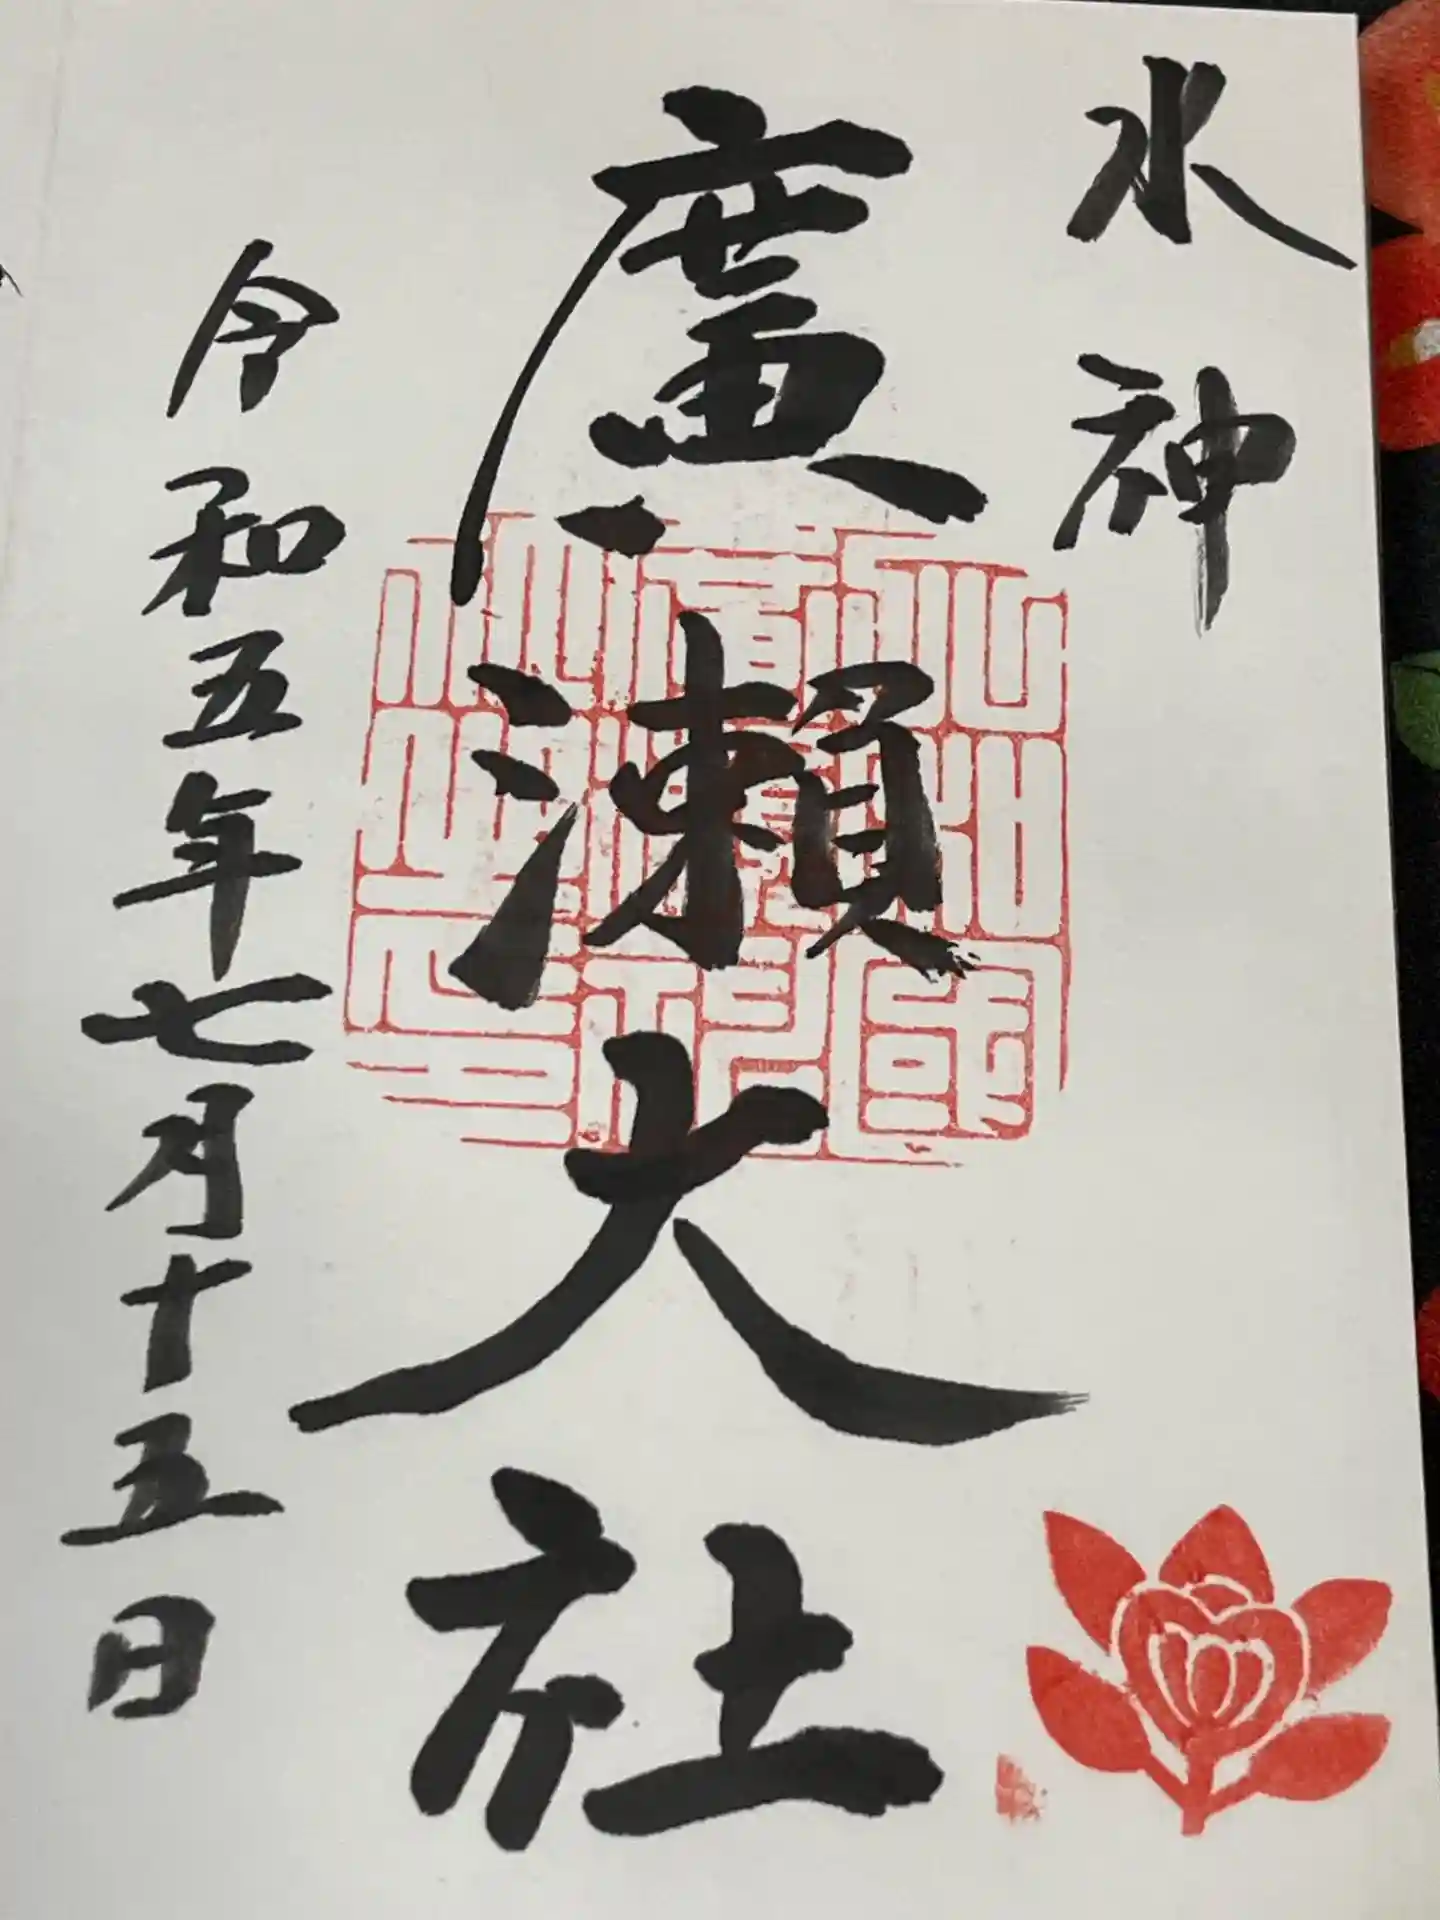 水神
廣瀬大社
令和五年七月十五日